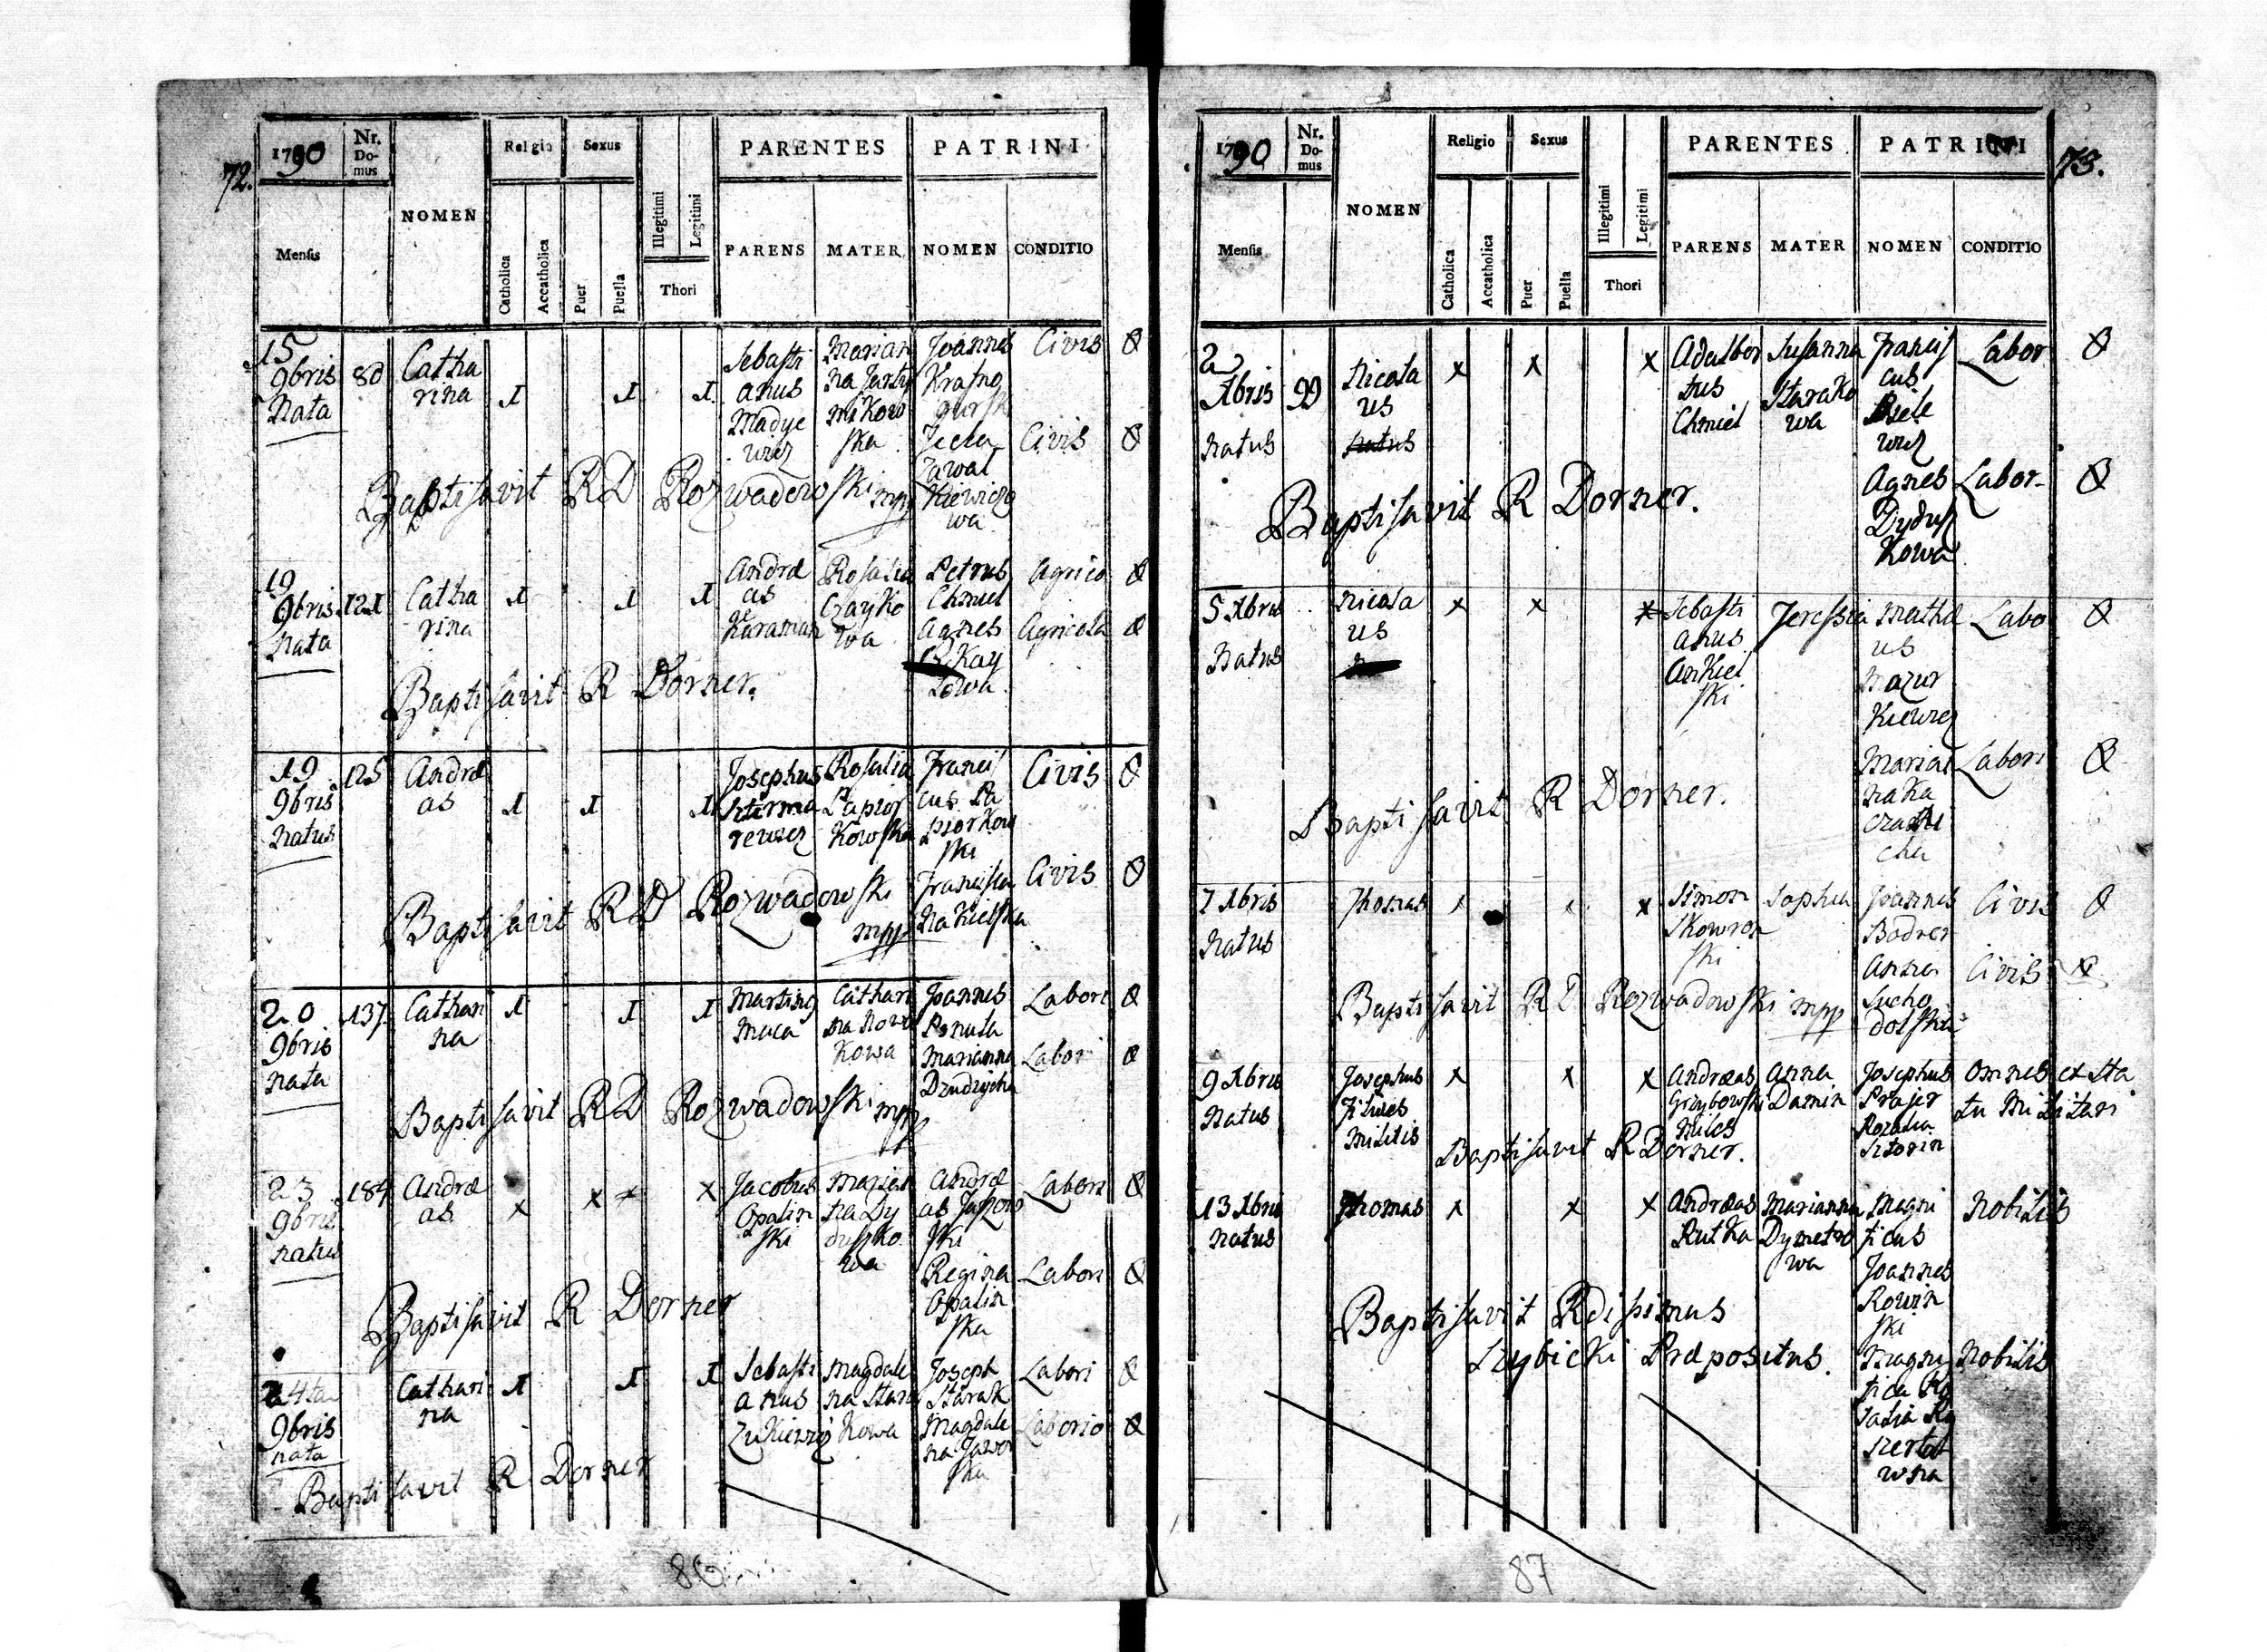 72.
1790
Nr. Do-
mus
NOMEN
Religio
Sexus
PARENTES
PATRINI
Mensis
Catholica
Accatholica
Puer
Puella
Illegitimi
Legitimi
Thori
PARENS
MATER
NOMEN
CONDITIO
15
9bris
Nata
80
Catha
rina
1
1
1
Sebasti
anus
Madye
wicz
Marian
na
mikow
ska
Joannes
Civis
Civis
Zawal
kiewiczo
wa
Baptisavit RD Rozwadowski mpp
19
9bris
nata
121
Catha
rina
1
1
1
Andre
as
Rosalia
Czayko
wa
Petrus
Chmiel
Agnes
Agrico
Agricola
Baptisavit R Dorner.
19
9bris
natus
125
Andre
as
1
1
1
Josephus
Rosalia
Papior
kowska
Francis
cus Pa
piorkow
ski
Francisca
Nakielska
Civis
Civis
Baptisavit RD Rozwadowski
mpp
20
9bris
nata
137
Cathari
na
1
1
1
Martinus
Maca
Cathari
na Nowa
kowa
Joannes
Ponuta
Marianna
Labori
Labori
Baptisavit RD Rozwadowski mpp
23
9bris
natus
184
Andre
as
x
x
x
x
Jacobus
Opalin
ski
Marian
na Dy
duszko
wa
Andre
as
ski
Regina
Opalin
ska
Labori
Labori
Baptisavit R Dorner
24ta
9bris
nata
Cathari
na
1
1
1
Sebasti
anus
Zukiewicz
Magdale
na Stara
kowa
Joseph
Starak
Magdale
na Jawor
ska
Labori
Laborio
Baptisavit R Dorner
86
73.
1790
Nr.
Do-
mus
NOMEN
Religio
Sexus
PARENTES
PATRINI
Mensis
Catholica
Accatholica
Puer
Puella
Illegitimi
Legitimi
Thori
PARENS
MATER
NOMEN
CONDITIO
2
Xbris
natus
99
Nicola
us
natus
x
x
x
Adalber
tus
Chmiel
Susanna
Starako
wa
Francis
cus
Biele
wicz
Agnes
Dydusz
kowa
Labor
Labor
Baptisavit R Dorner.
5 Xbris
Natus
Nicola
us
x
x
x
Sebasti
anus
Ankiel
ski
Teressia
Mathe
us
Mazur
kiewicz
Marian
na Ka
cha
Labo
Labori
Baptisavit R Dorner.
7 Xbris
Natus
Thomas
x
x
x
Simon
Skowron
ski
Sophia
Joannes
Bodner
Anna
Sucho
dolska
Civis
Civis
Baptisavit RD Rozwadowski mpp
9 Xbris
Natus
Josephus
Filius
Militis
x
x
x
Andreas
Grzybowski
Miles
Anna
Damin
Josephus
Praser
Rozalia
Omnes ex sta
tu Militari
Baptisavit R Dorner.
13 Xbris
natus
Thomas
x
x
x
Andreas
Rutka
Marianna
Dymetro
wa
Magni
ficus
Joannes
Rowin
ski
Magni
fica Ro
salia
wna
Nobilis
Nobilis
Baptisavit Rdissimus
Szybicki Præpositus.
87